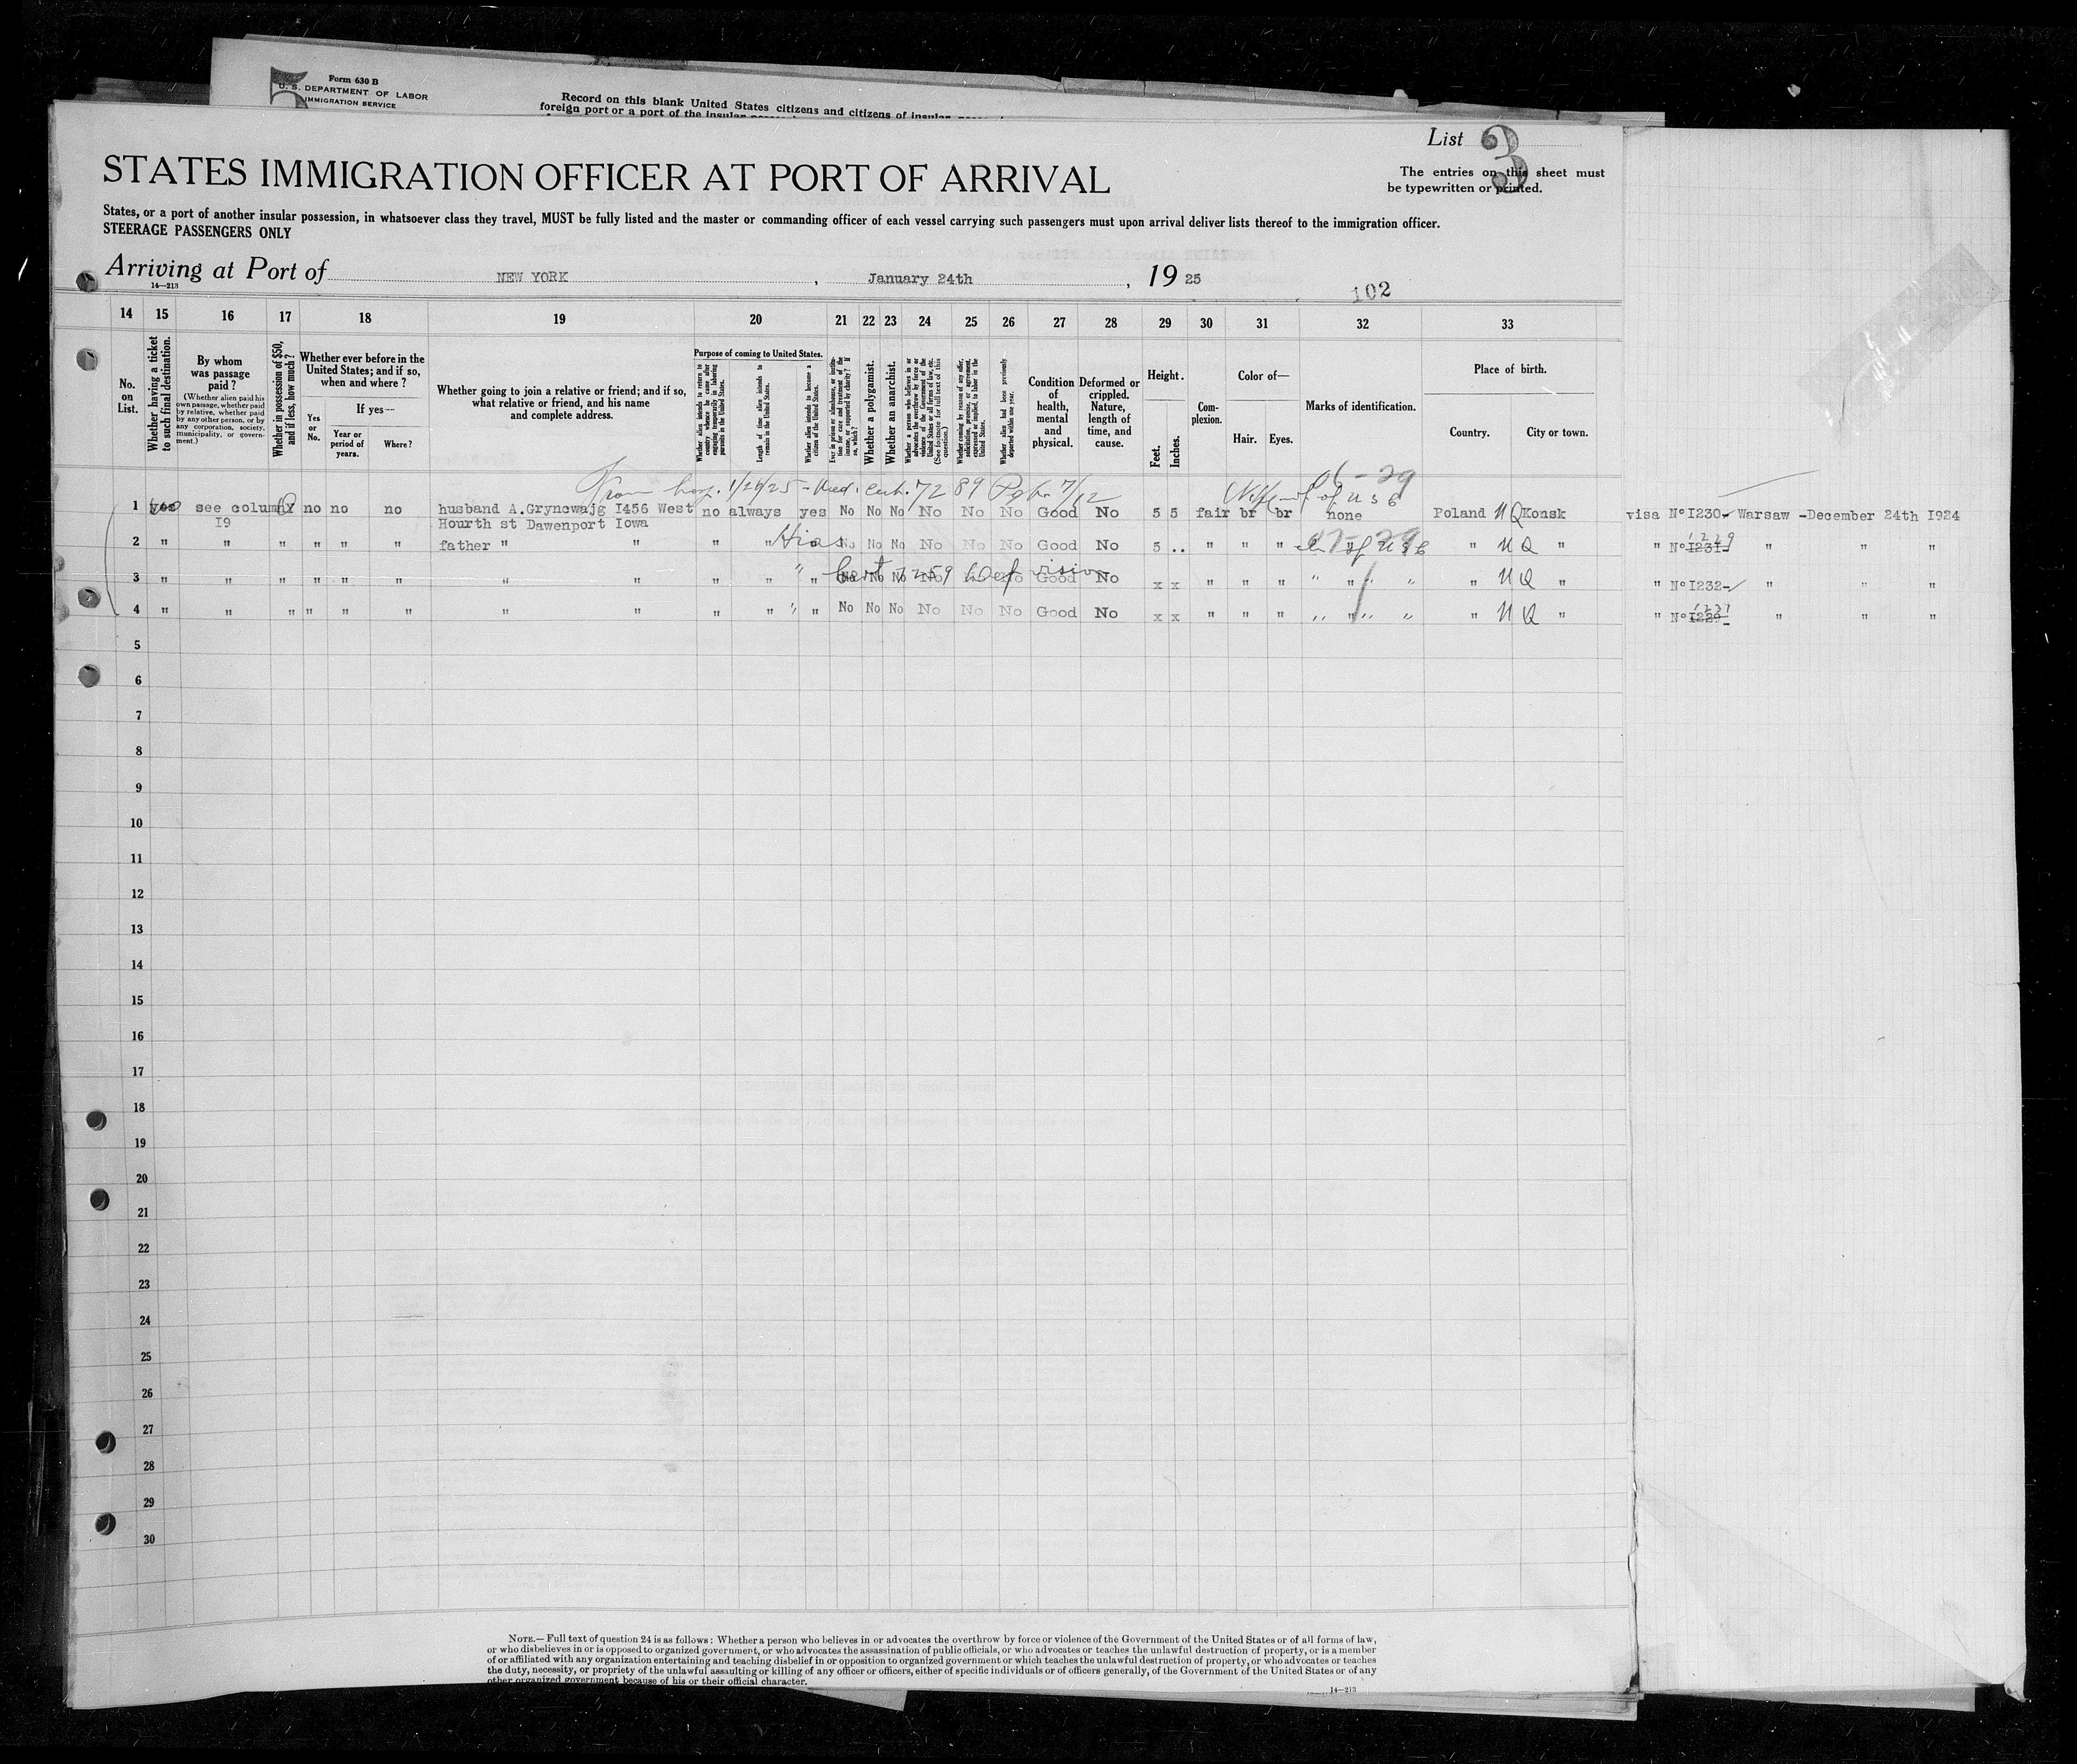 Form 630 B
U. S. DEPARTMENT OF LABOR
IMMIGRATION SERVICE
5
Record on this blank United States citizens and citizens of insular
foreign port or a port of the insular
List 3
The entries on this sheet must
be typewritten or printed.
STATES IMMIGRATION OFFICER AT PORT OF ARRIVAL
States, or a port of another insular possession, in whatsoever class they travel, MUST be fully listed and the master or commanding officer of each vessel carrying such passengers must upon arrival deliver lists thereof to the immigration officer.
STEERAGE PASSENGERS ONLY
Arriving at Port of NEW YORK, January 24th, 19 25
14—213
102
14 15 16 17 18 19 20 21 22 23 24 25 26 27 28 29 30 31 32 33
No. on List.
Whether having a ticket to such final destination.
By whom was passage paid?
(Whether alien paid his own passage, whether paid by relative, whether paid by any other person, or by any corporation, society, municipality, or government.)
Whether in possession of $50, and if less, how much?
Whether ever before in the United States; and if so, when and where?
Yes or No.
If yes—
Year or period of years.
Where?
Whether going to join a relative or friend; and if so, what relative or friend, and his name and complete address.
Purpose of coming to United States.
Whether alien intends to return to country whence he came after engaging temporarily in laboring pursuits in the United States.
Length of time alien intends to remain in the United States.
Whether alien intends to become a citizen of the United States.
Ever in prison or almshouse, or institution for care and treatment of the insane, or supported by charity? If so, which?
Whether a polygamist.
Whether an anarchist.
Whether a person who believes in or advocates the overthrow by force or violence of the Government of the United States or all forms of law, etc. (See footnote for full text of this question.)
Whether coming by reason of any offer, solicitation, promise, or agreement, expressed or implied, to labor in the United States.
Whether alien had been previously deported within one year.
Condition of health, mental and physical.
Deformed or crippled. Nature, length of time, and cause.
Height.
Feet. Inches.
Complexion.
Color of—
Hair. Eyes.
Marks of identification.
Place of birth.
Country. City or town.
From hosp. 1/26/25 - Med. cert. 7289
Wife of U S C
1 yes see column no no no husband A.Gryncwajg I456 West no always yes No No No No No No Good No 5 5 fair br br none Poland Konsk visa N° I230- Warsaw -December 24th I924
I9 Hourth st Dawenport Iowa
2 " " " " " " father " " " " Hias No No No No No No Good No 5 .. " " " " " " N° I231- 1229 " " "
3 " " " " " " " " " " " No No No No No No Good No x x " " " " " " " " N° I232- " "
4 " " " " " " " " " " " No No No No No No Good No x x " " " " " " " " N° I229- 1231 " " "
5
6
7
8
9
10
11
12
13
14
15
16
17
18
19
20
21
22
23
24
25
26
27
28
29
30
NOTE.—Full text of question 24 is as follows: Whether a person who believes in or advocates the overthrow by force or violence of the Government of the United States or of all forms of law,
or who disbelieves in or is opposed to organized government, or who advocates the assassination of public officials, or who advocates or teaches the unlawful destruction of property, or is a member
of or affiliated with any organization entertaining and teaching disbelief in or opposition to organized government or which teaches the unlawful destruction of property, or who advocates or teaches
the duty, necessity, or propriety of the unlawful assaulting or killing of any officer or officers, either of specific individuals or of officers generally, of the Government of the United States or of any
other organized government because of his or their official character.
14—213